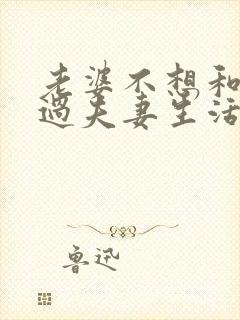 老婆不想和
过夫妻生活
鲁迅